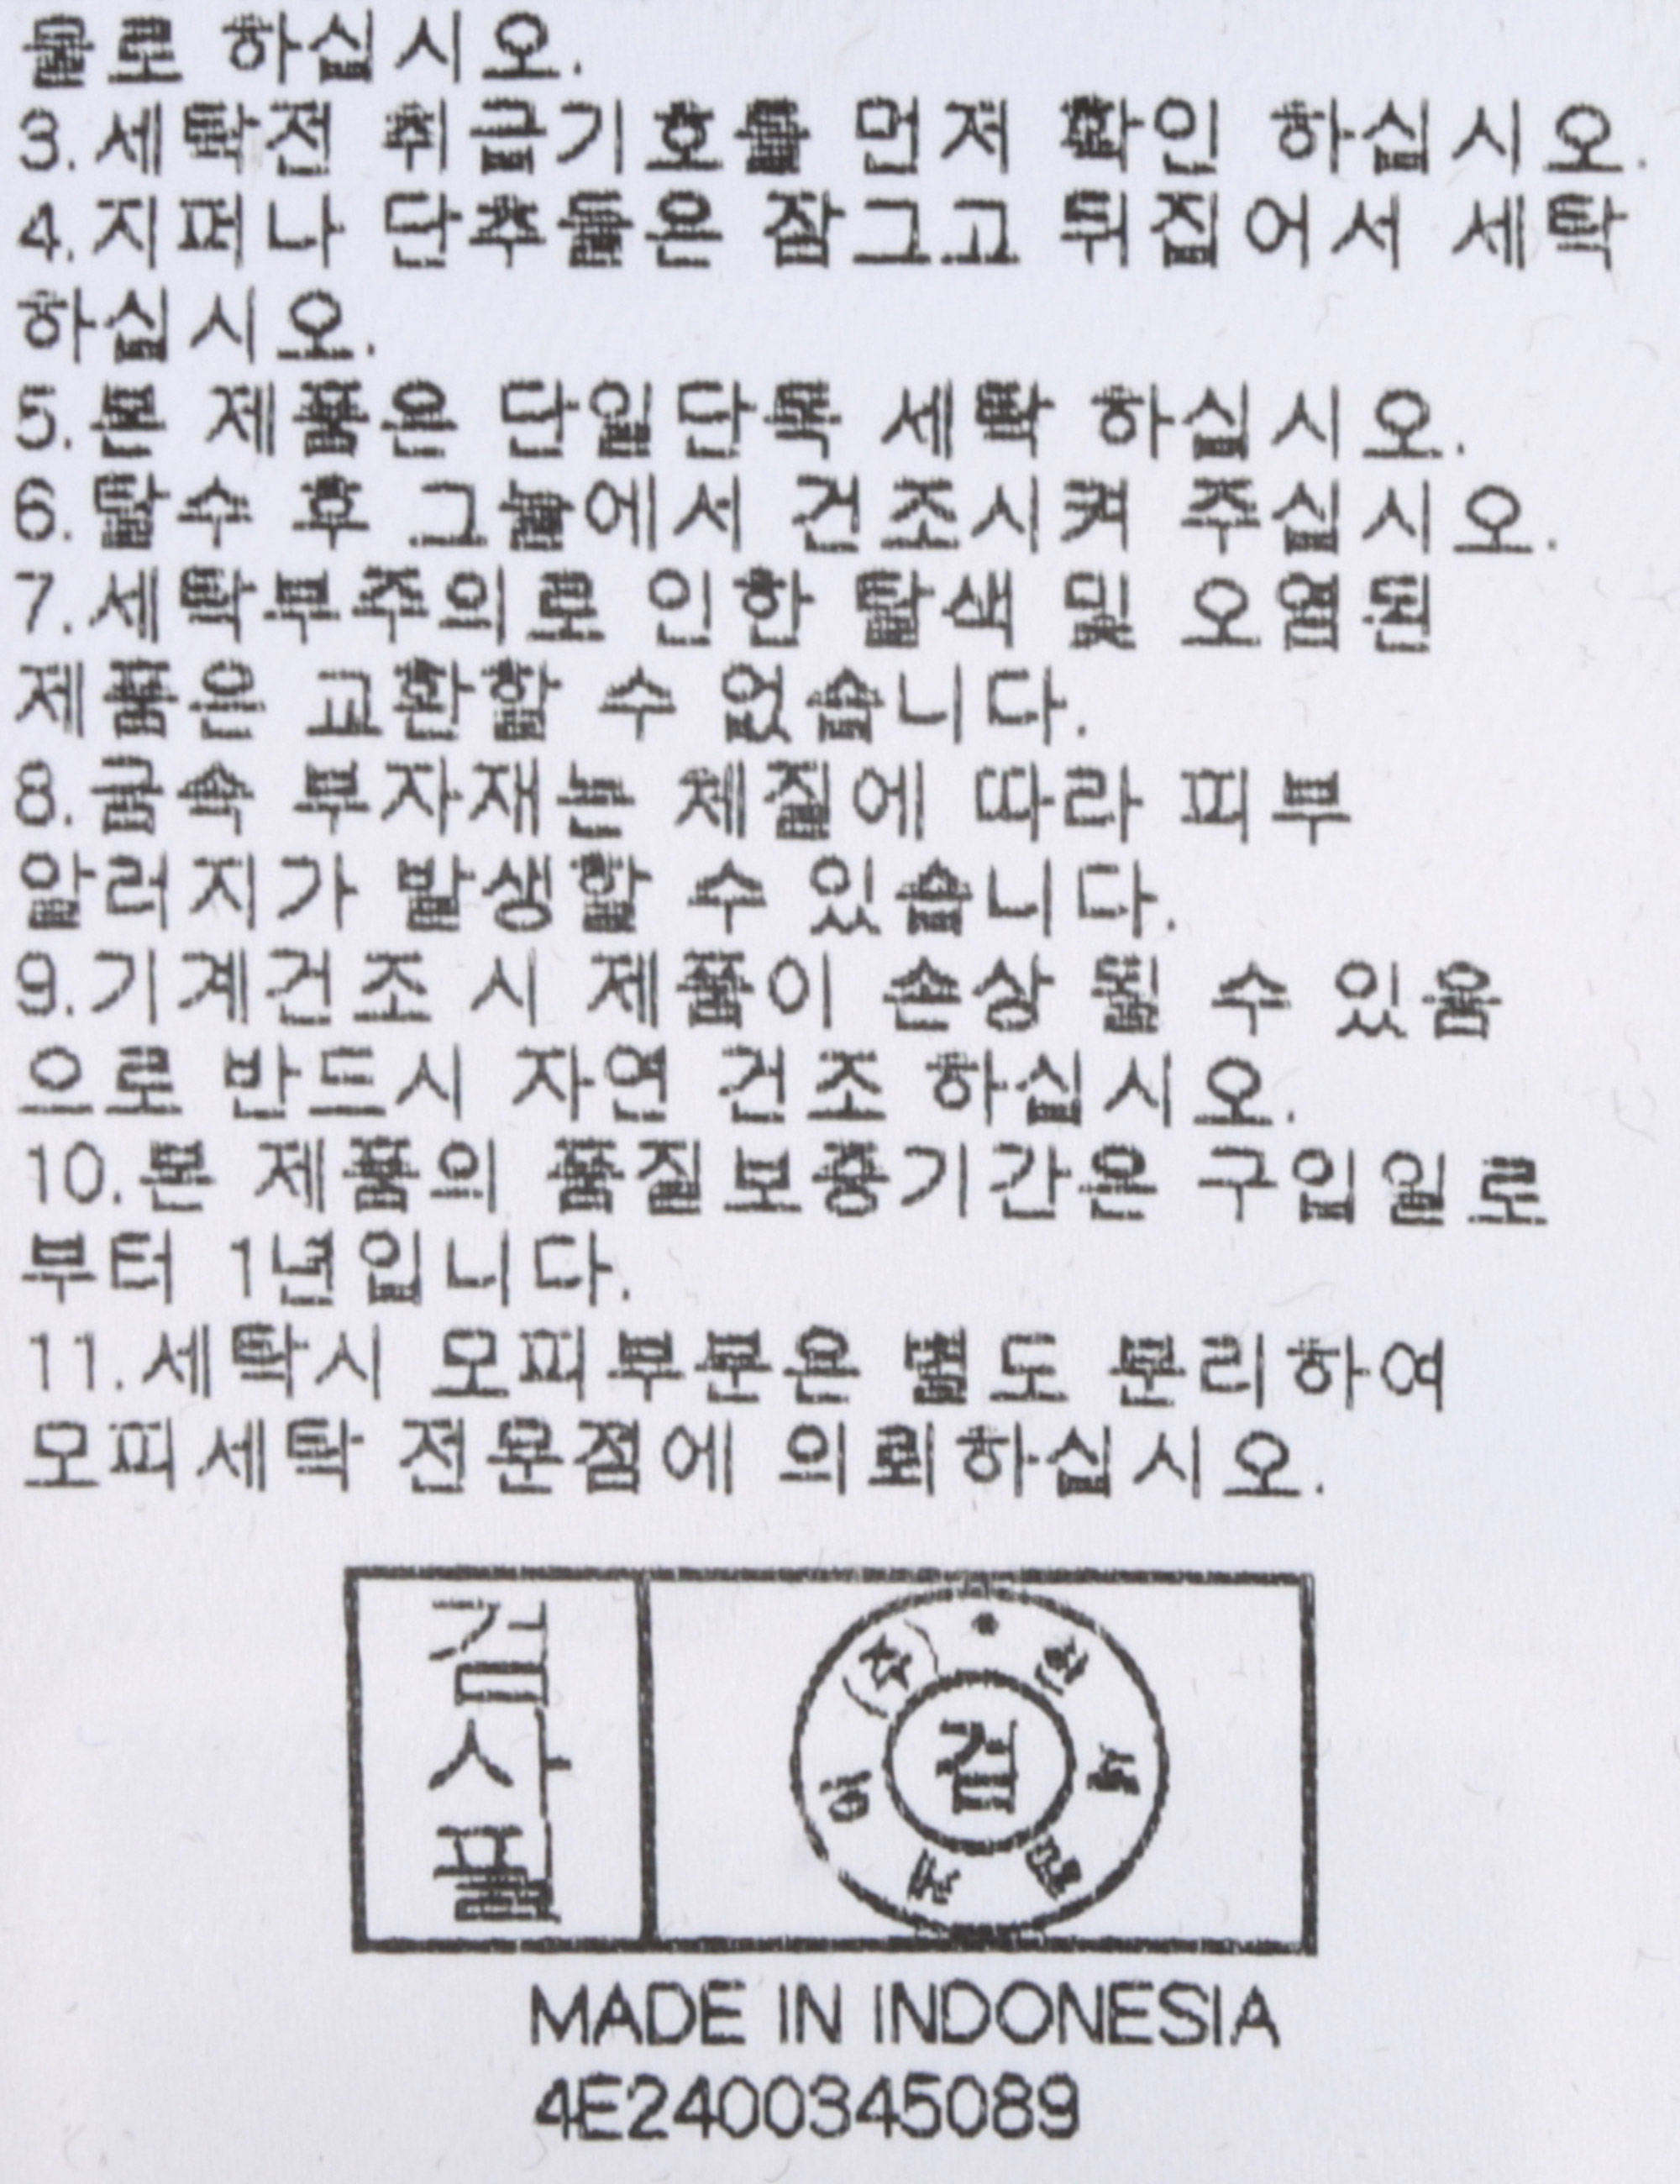 물로 하십시오.
3.세탁전 취급기호를 먼저 확인 하십시오.
4.지퍼나 단추들은 잠그고 뒤집어서 세탁
하십시오.
5.본 제품은 단일단독 세탁 하십시오.
6.탈수 후 그늘에서 건조시켜 주십시오.
7.세탁부주의로 인한 탈색 및 오염된
제품은 교환할 수 없습니다.
8.금속 부자재는 체질에 따라 피부
알러지가 발생할 수 있습니다.
9.기계건조 시 제품이 손상 될 수 있음
으로 반드시 자연 건조 하십시오.
10.본 제품의 품질보증기간은 구입일로
부터 1년입니다.
11.세탁시 모피부분은 별도 분리하여
모피세탁 전문점에 의뢰하십시오.
검사필
한세엠케이(주)
검
MADE IN INDONESIA
4E2400345089